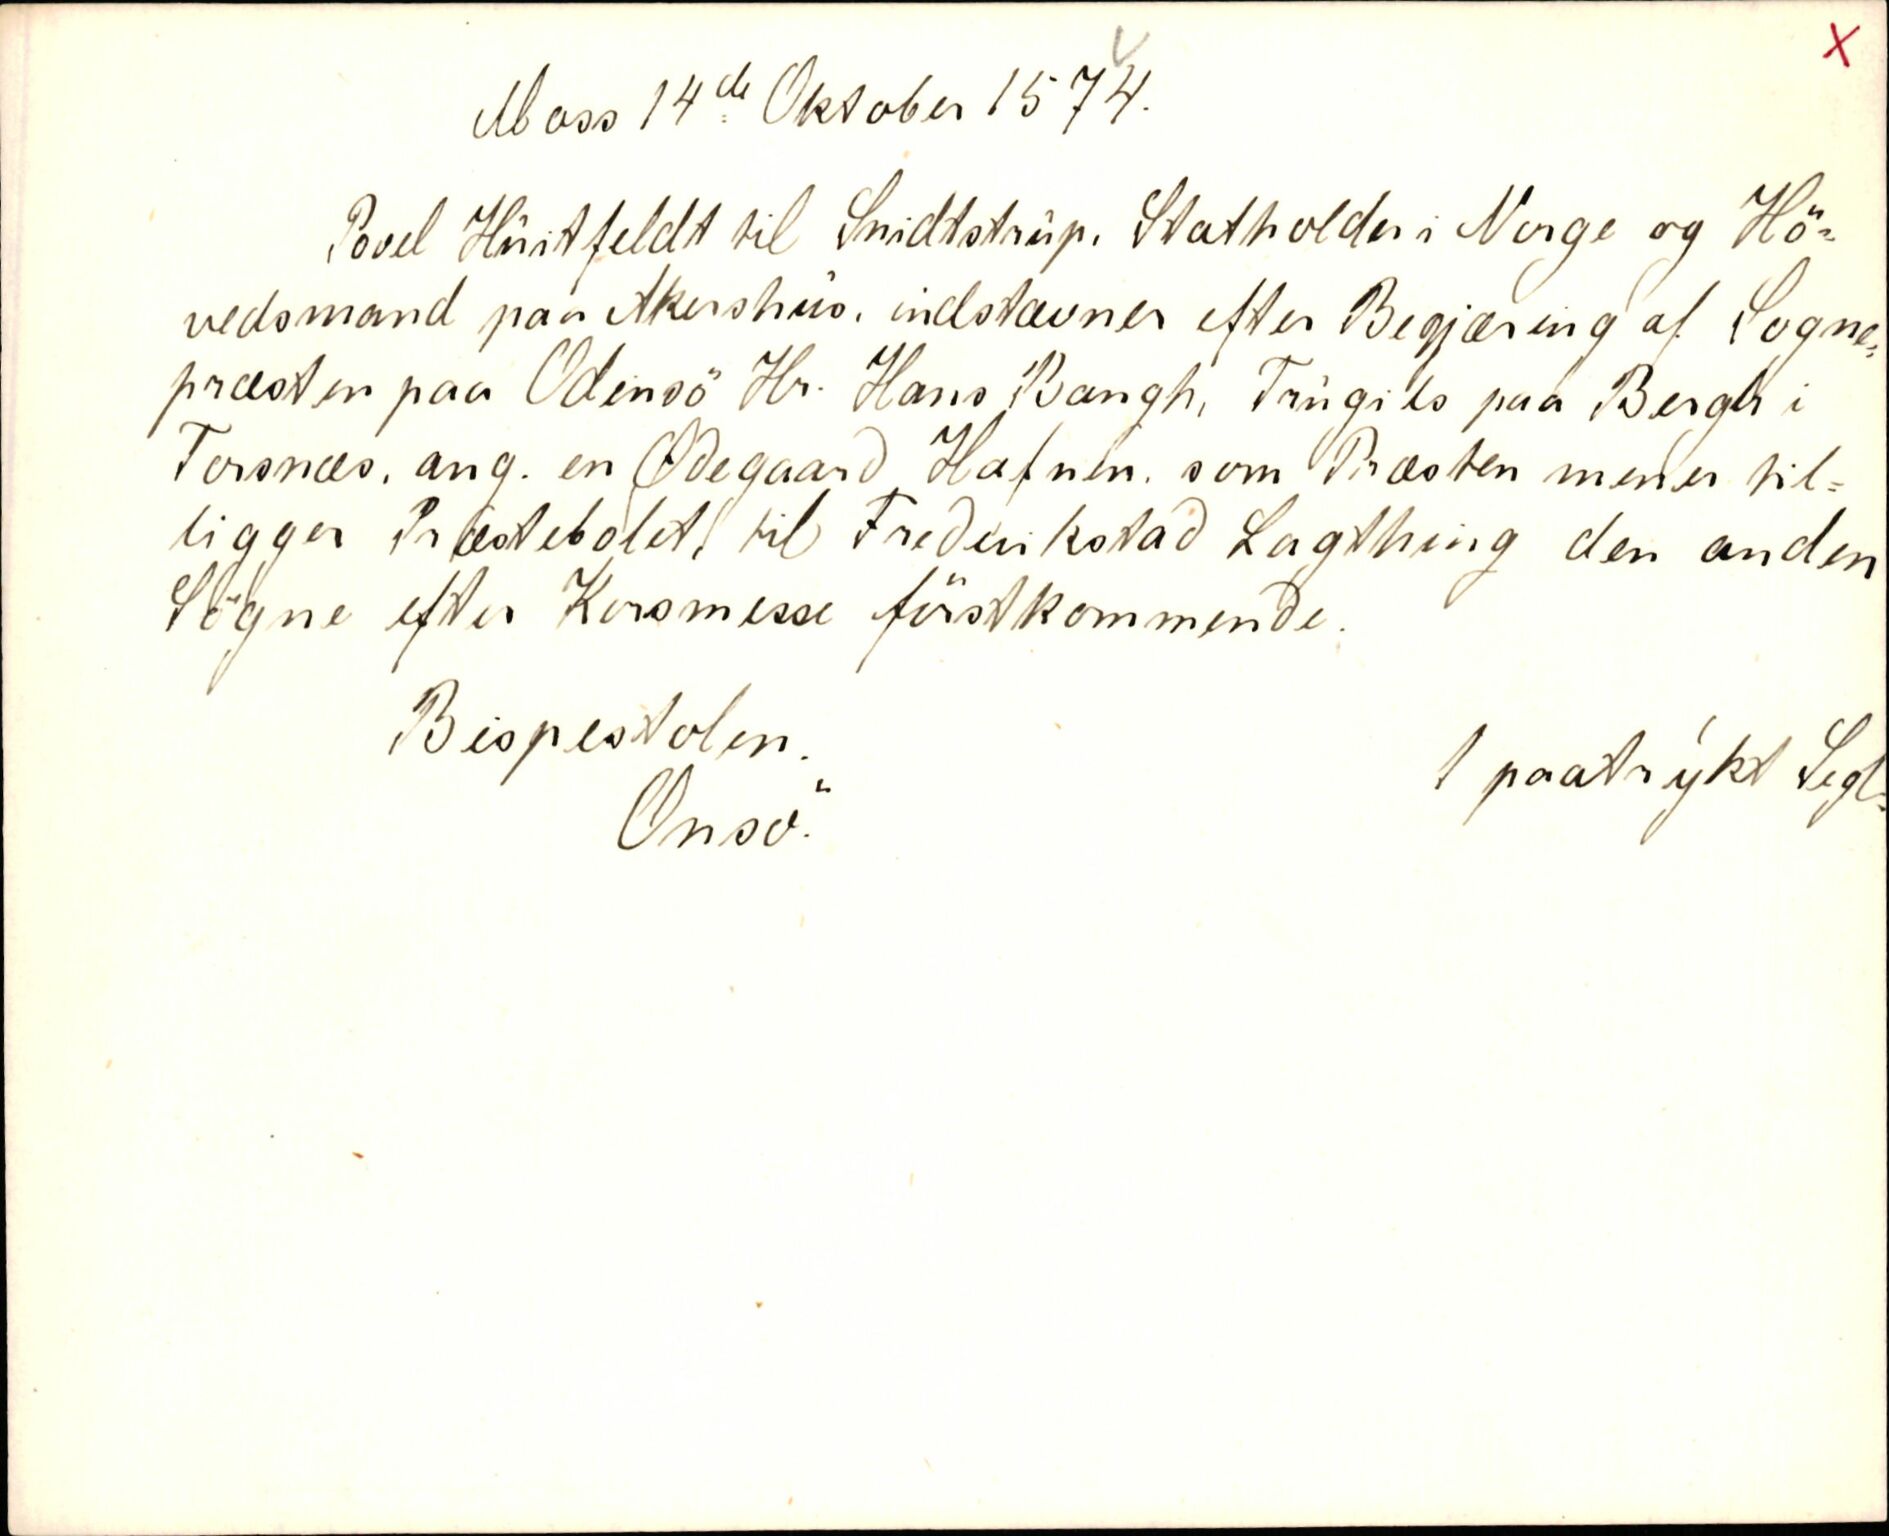 X
Moss 14de Oktober 1574.
Povel Hüitfeldt til Snidtstrüp, Statholder i Norge og Hö=
vedsmand paa Akershüs, indstævner efter Begjæring af Sogne=
præsten paa Odensö Hr. Hans Bangh, Trügils paa Bergh i
Torsnæs, ang. en Ødegaard Hafnen, som Præsten mener til=
ligger Præstebolet, til Frederikstad Lagthing den anden
Sögne efter Korsmesse förstkommende.
Bispestolen.
Onsö.
1 paatrykt Segl=